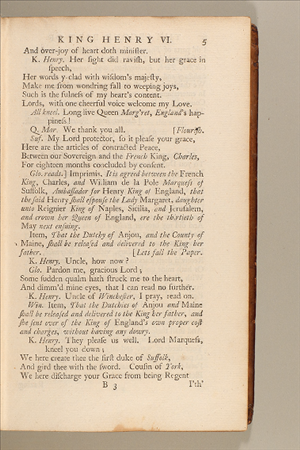 KING HENRY VI. 5
And over-joy of heart doth minister.
K. Henry. Her sight did ravish, but her grace in
speech,
Her words y-clad with wisdom's majesty,
Make me from wondring fall to weeping joys,
Such is the fulness of my heart's content.
Lords, with one cheerful voice welcome my Love.
All kneel. Long live Queen Marg'ret, England's hap-
piness!
Q. Mar. We thank you all. [Flourish.
Suf. My Lord protector, so it please your grace,
Here are the articles of contracted Peace,
Between our Sovereign and the French King, Charles,
For eighteen months concluded by consent.
Glo. reads.] Imprimis, It is agreed between the French
King, Charles, and William de la Pole Marquess of
Suffolk, Ambassador for Henry King of England, that
the said Henry shall espouse the Lady Margaret, daughter
unto Reignier King of Naples, Sicilia, and Jerusalem,
and crown her Queen of England, ere the thirtieth of
May next ensuing.
Item, That the Dutchy of Anjou, and the County of
Maine, shall be released and delivered to the King her
father. [Lets fall the Paper.
K. Henry. Uncle, how now?
Glo. Pardon me, gracious Lord;
Some sudden qualm hath struck me to the heart,
And dimm'd mine eyes, that I can read no further.
K. Henry. Uncle of Winchester, I pray, read on.
Win. Item, That the Dutchies of Anjou and Maine
shall be released and delivered to the King her father, and
she sent over of the King of England's own proper cost
and charges, without having any dowry.
K. Henry. They please us well. Lord Marquess,
kneel you down;
We here create thee the first duke of Suffolk,
And gird thee with the sword. Cousin of York,
We here discharge your Grace from being Regent
B 3 I'th'